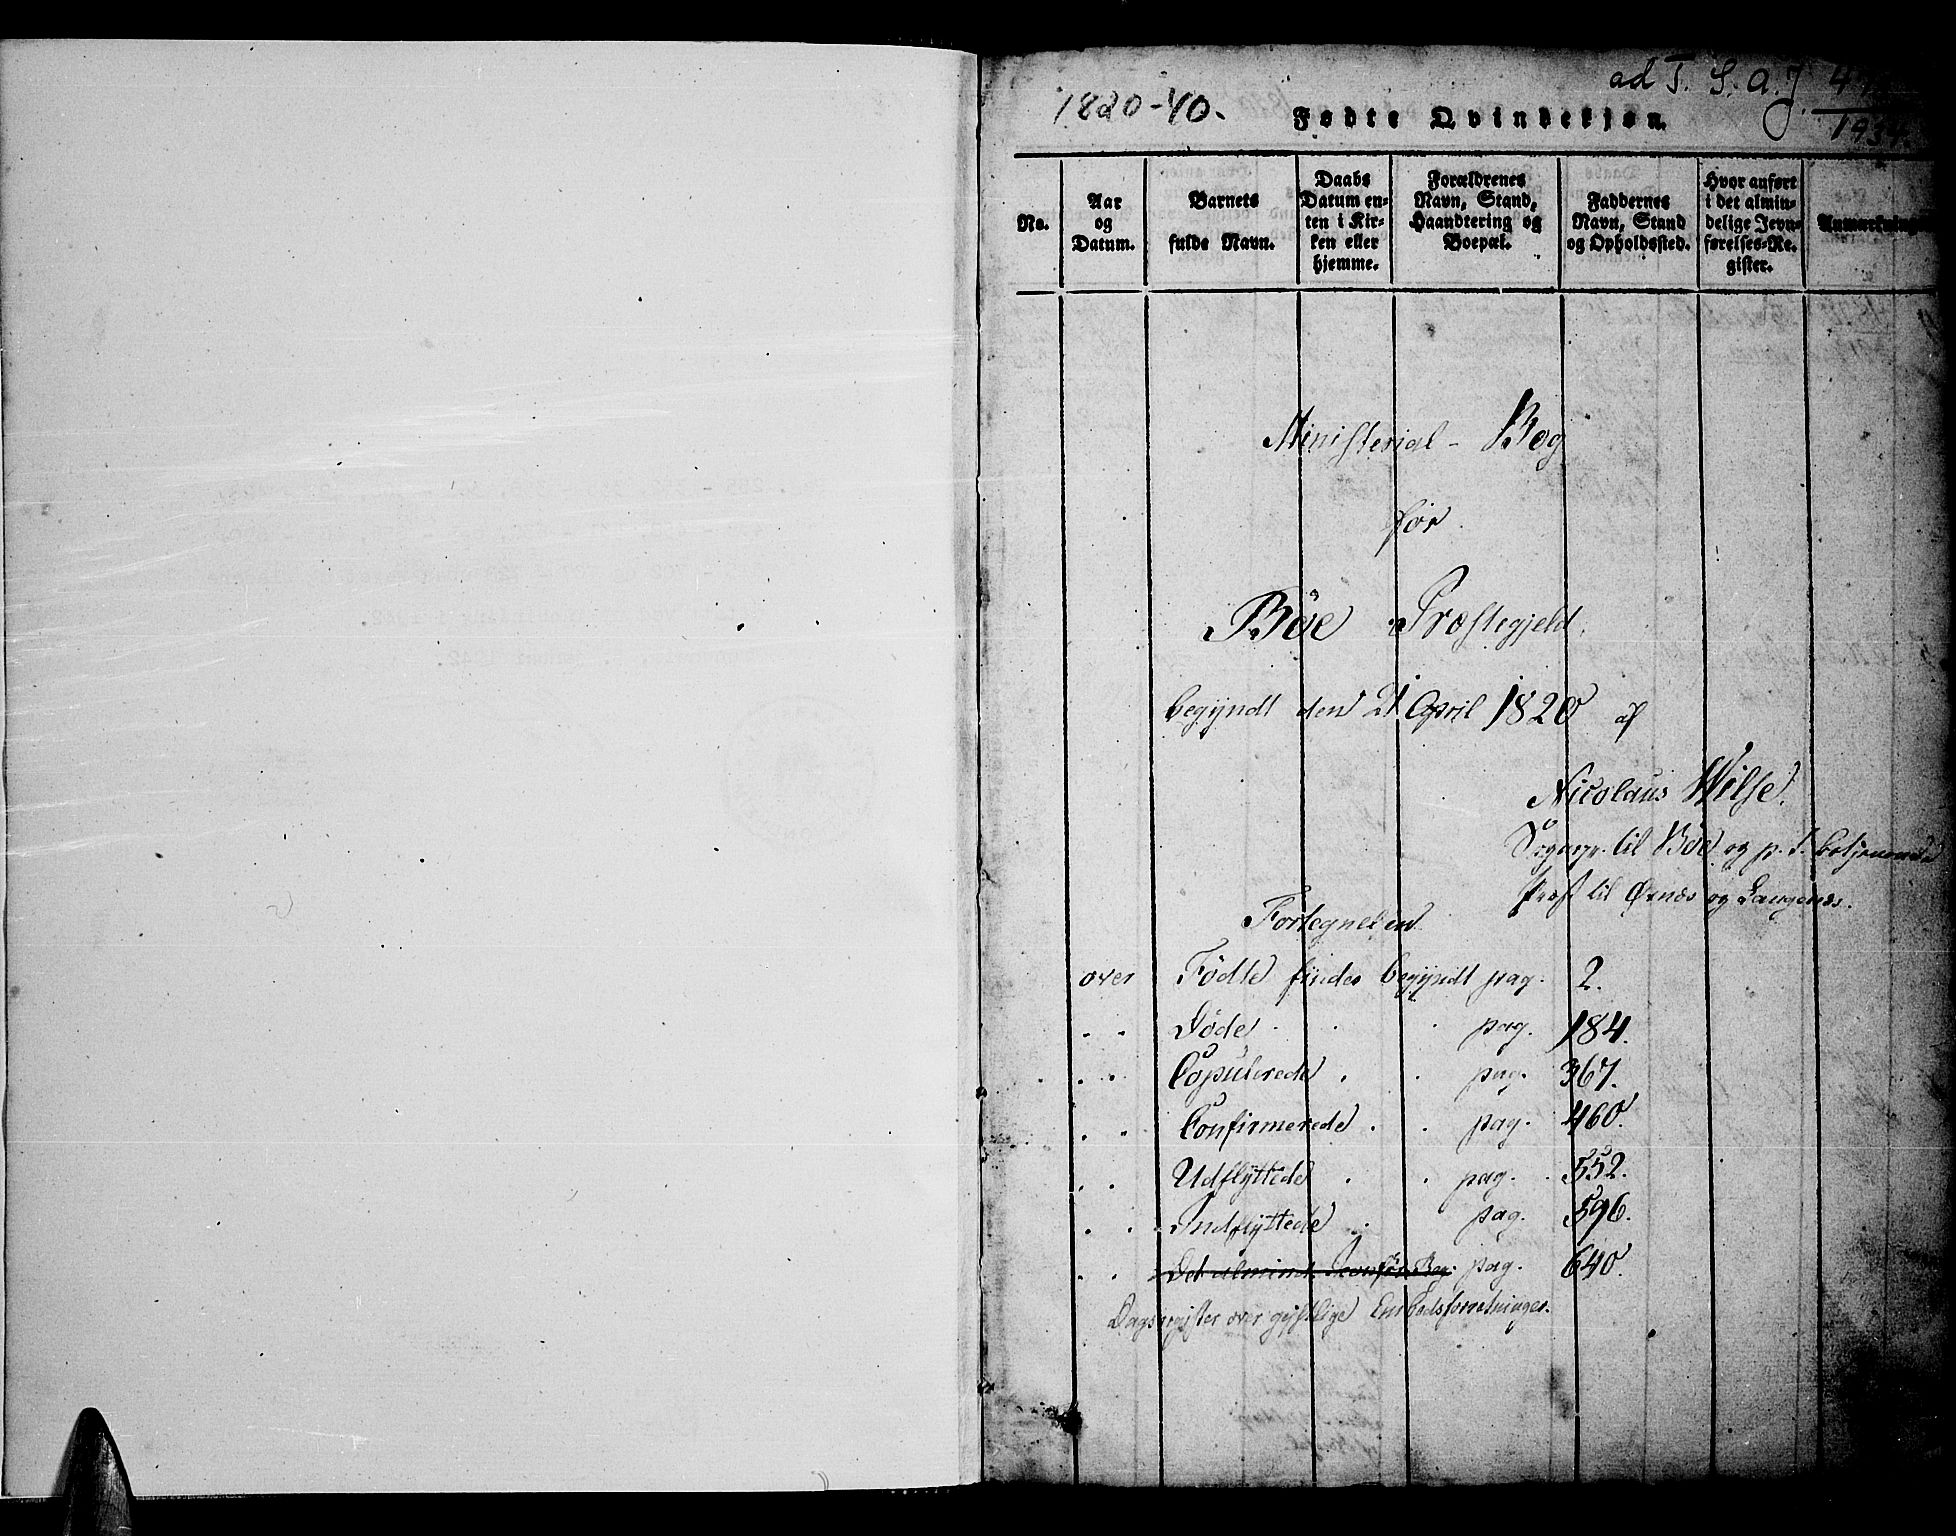 ad T. S. A. J. 4
1820-40.
1934.
Fødte Qvindekjøn.
No.
Aar
og
Datum.
Barnets
fulde Navn.
Daabs
Datum en-
ten i Kir-
ken eller
hjemme.
Forældrenes
Navn, Stand,
Haandtering og
Boepæl.
Faddernes
Navn, Stand
og Opholdssted.
Hvor anført
i det almin-
delige Jevn-
førelses-Re-
gister.
Anmærkninger
Ministerial-Bog
for
Böe Præstegjeld,
begyndt den 21 April 1820 af
Nicolaus Wilse.
Sognepr. til Böe og p. t. betjenende
Præst til Øxnæs og Langenæs.
Fortegnelsen
over Födte findes begyndt pag. 2.
. . Döde . . . pag. 184.
. . Copulerede . . pag. 367.
. . Confirmerede . . pag. 460.
. . Udflyttede . . pag. 552.
. . Indflyttede . pag. 596.
. . Det almind. Jevnför. Reg. pag. 640.
Dagsregister over gejstlige Embedsforretninger.